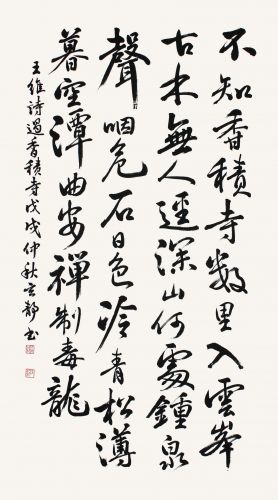 不知香積寺數里入雲峯
古木無人逕深山何處鍾泉
聲咽危石日色冷青松薄
暮空潭曲安禪制毒龍
王維詩過香積寺戊戌仲秋玄靜书